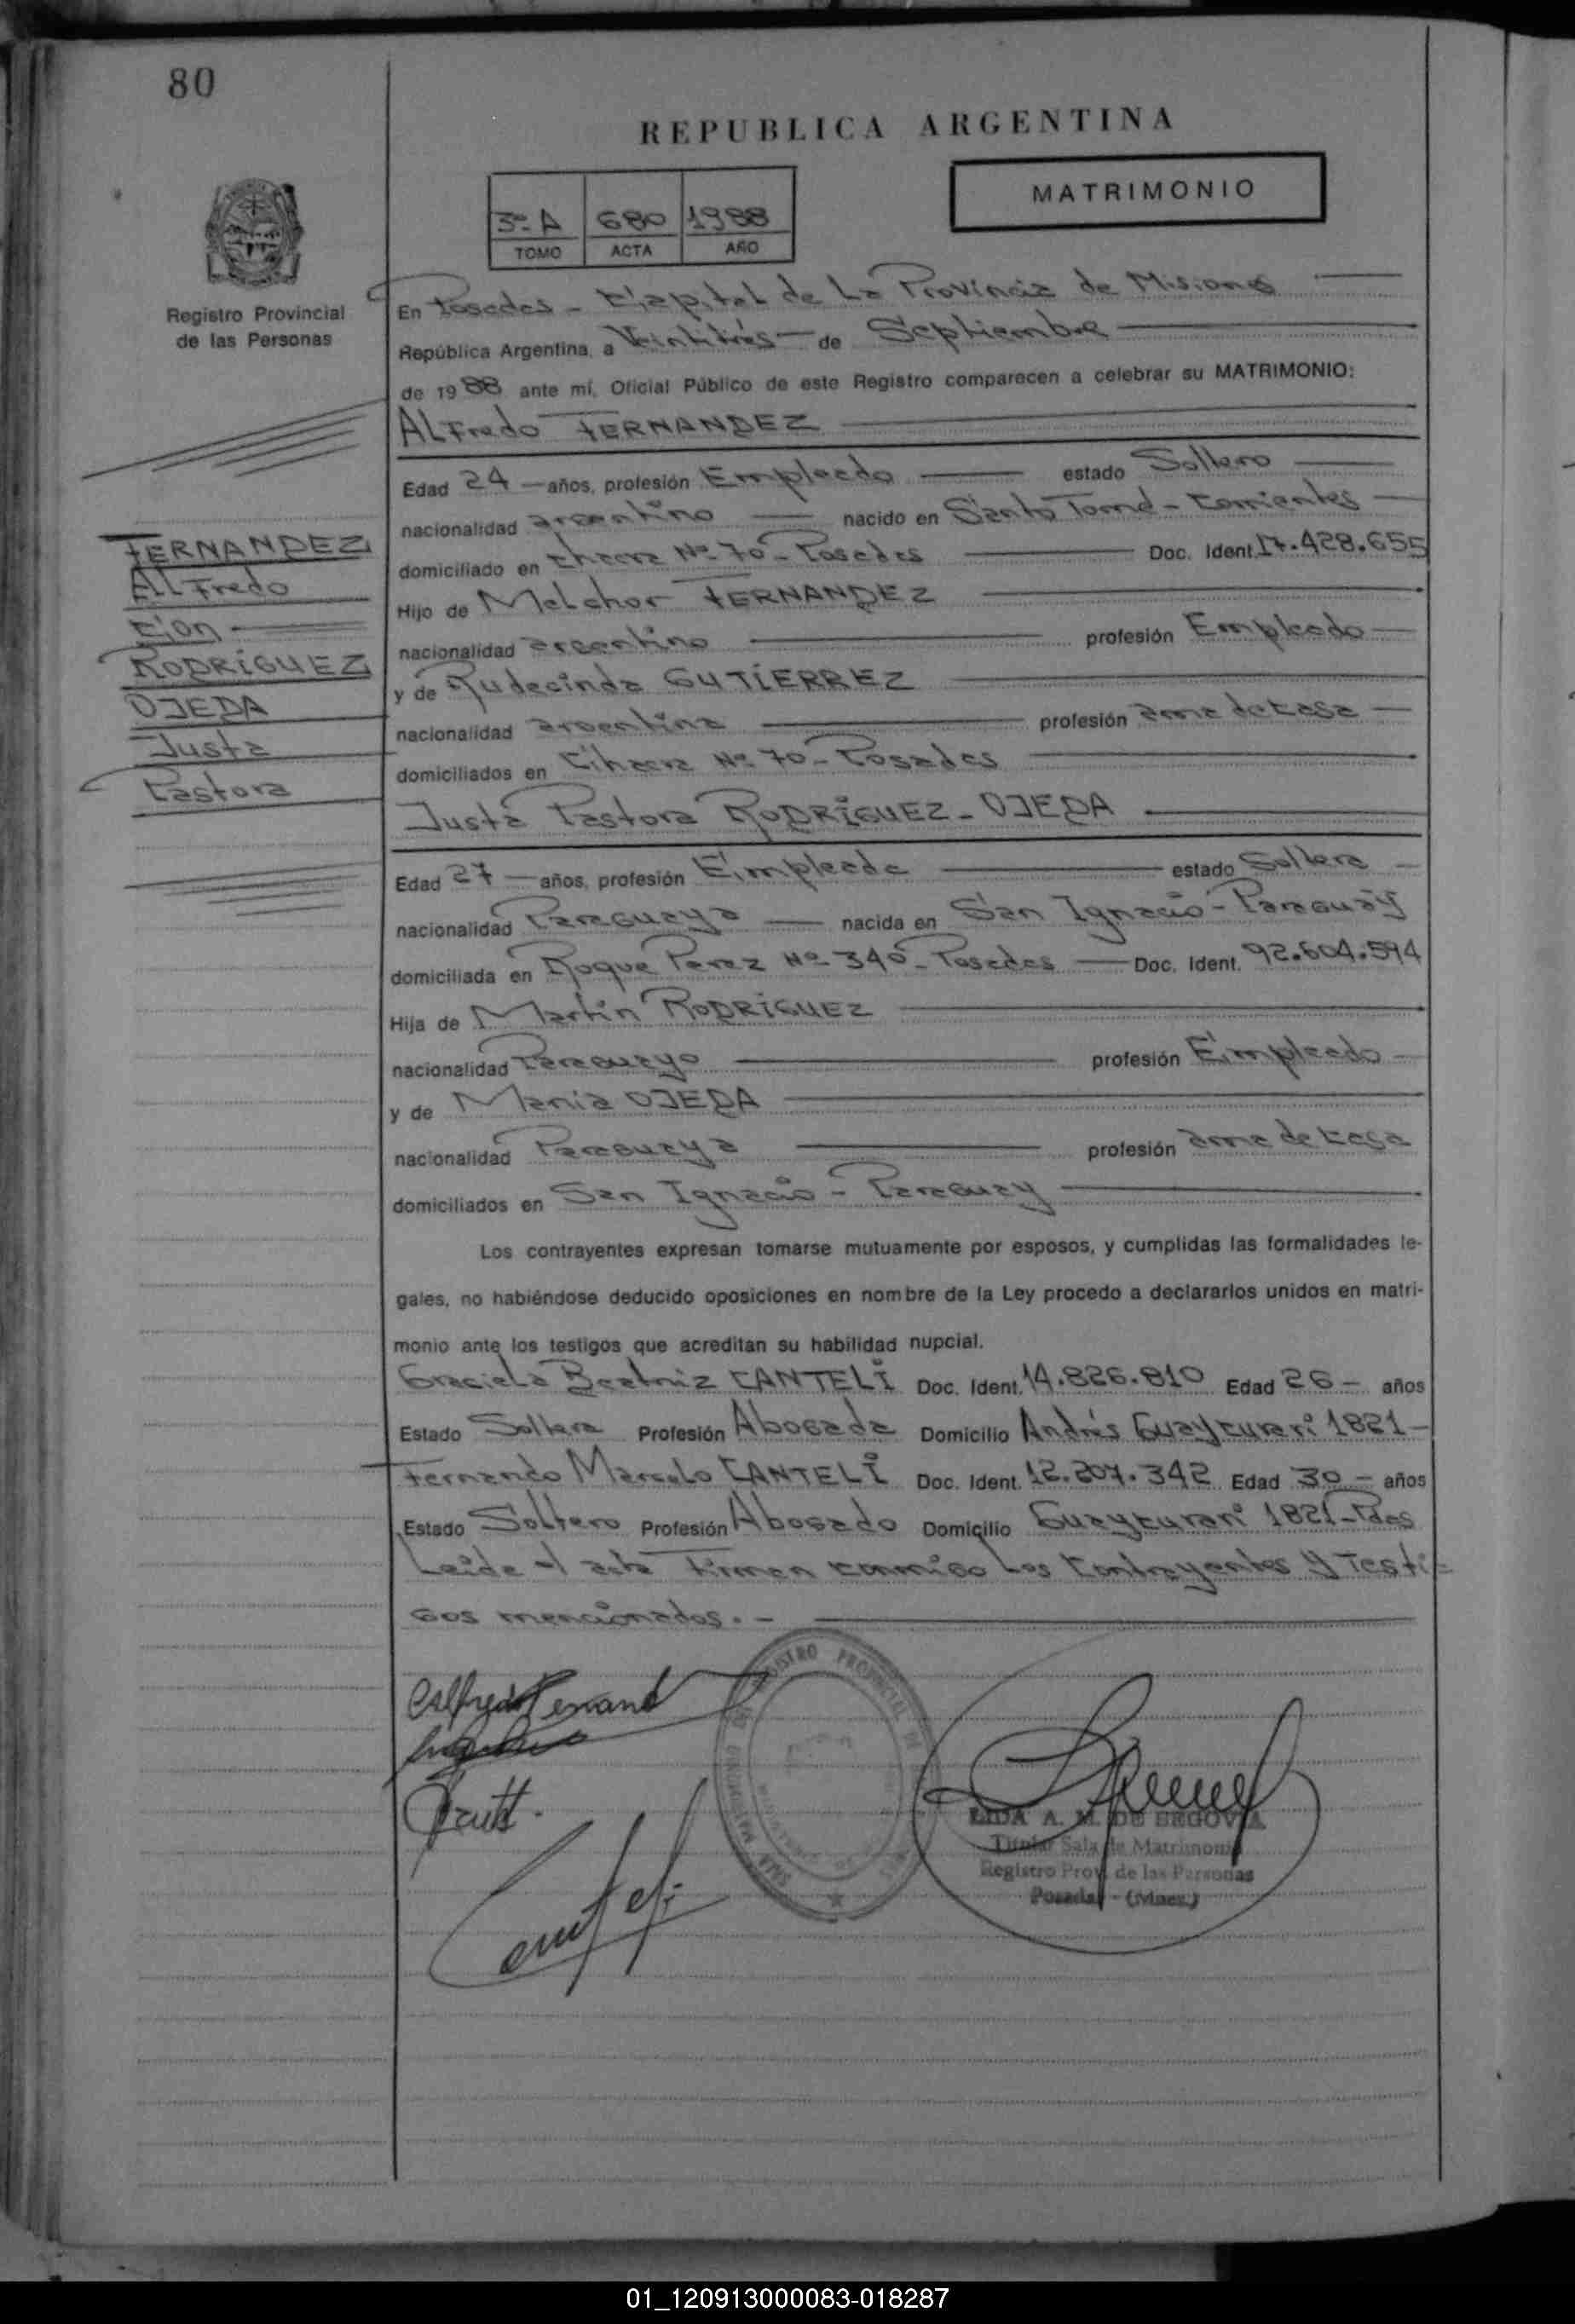 80
REPUBLICA ARGENTINA
MATRIMONIO
3º A 680 1988
TOMO ACTA AÑO
Registro Provincial
de las Personas
En Posadas - Capital de La Provincia de Misiones
República Argentina, a Veintitrés de Septiembre
de 1988 ante mí, Oficial Público de este Registro comparecen a celebrar su MATRIMONIO:
ALFredo FERNANDEZ
Edad 24 años, profesión Empleado estado Soltero
nacionalidad argentino nacido en Santo Tomé - Corrientes
domiciliado en Chacra Nº 70 - Posadas Doc. Ident. 17.428.655
Hijo de Melchor FERNANDEZ
nacionalidad argentino profesión Empleado
y de Rudecinda GUTIERREZ
nacionalidad argentina profesión ama de casa
domiciliados en Chacra Nº 70 - Posadas
Justa Pastora RODRIGUEZ - OJEDA
Edad 27 años, profesión Empleada estado Soltera
nacionalidad Paraguaya nacida en San Ignacio - Paraguay
domiciliada en Roque Perez Nº 340 - Posadas Doc. Ident. 92.604.594
Hija de Martin RODRIGUEZ
nacionalidad Paraguayo profesión Empleado
y de Maria OJEDA
nacionalidad Paraguaya profesión ama de casa
domiciliados en San Ignacio - Paraguay
Los contrayentes expresan tomarse mutuamente por esposos, y cumplidas las formalidades le-
gales, no habiéndose deducido oposiciones en nombre de la Ley procedo a declararlos unidos en matri-
monio ante los testigos que acreditan su habilidad nupcial.
Graciela Beatriz CANTELI Doc. Ident. 14.826.810 Edad 26 - años
Estado Soltera Profesión Abogada Domicilio Andrés Guaycurari 1821 -
Fernando Marcelo CANTELI Doc. Ident. 12.207.342 Edad 30 - años
Estado Soltero Profesión Abogado Domicilio Guaycurari 1821 - Pdas
Leída el acta Firman conmigo Los Contrayentes y Testi-
gos mencionados. -
FERNANDEZ
ALFredo
con
RODRIGUEZ
OJEDA
Justa
Pastora
Alfredo Fernand
Canteli
LIDA A. M. DE SEGOVIA
Titular Sala de Matrimonio
Registro Prov. de las Personas
Posadas - (Mnes.)
01_120913000083-018287